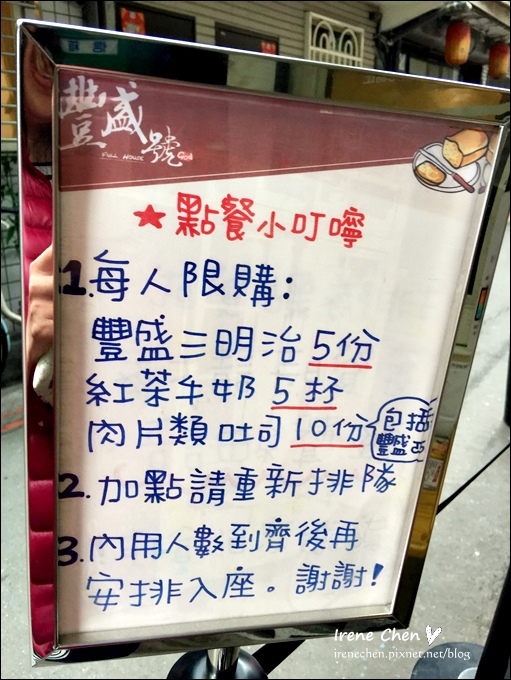 豐盛號
FULL HOUSE
★點餐小叮嚀
1.每人限購:
豐盛三明治 5份
紅茶牛奶 5杯
肉片類吐司 10份
包括
豐盛西
2.加點請重新排隊
3.內用人數到齊後再
安排入座。謝謝!
Irene Chen
irenechen.pixnet.net/blog